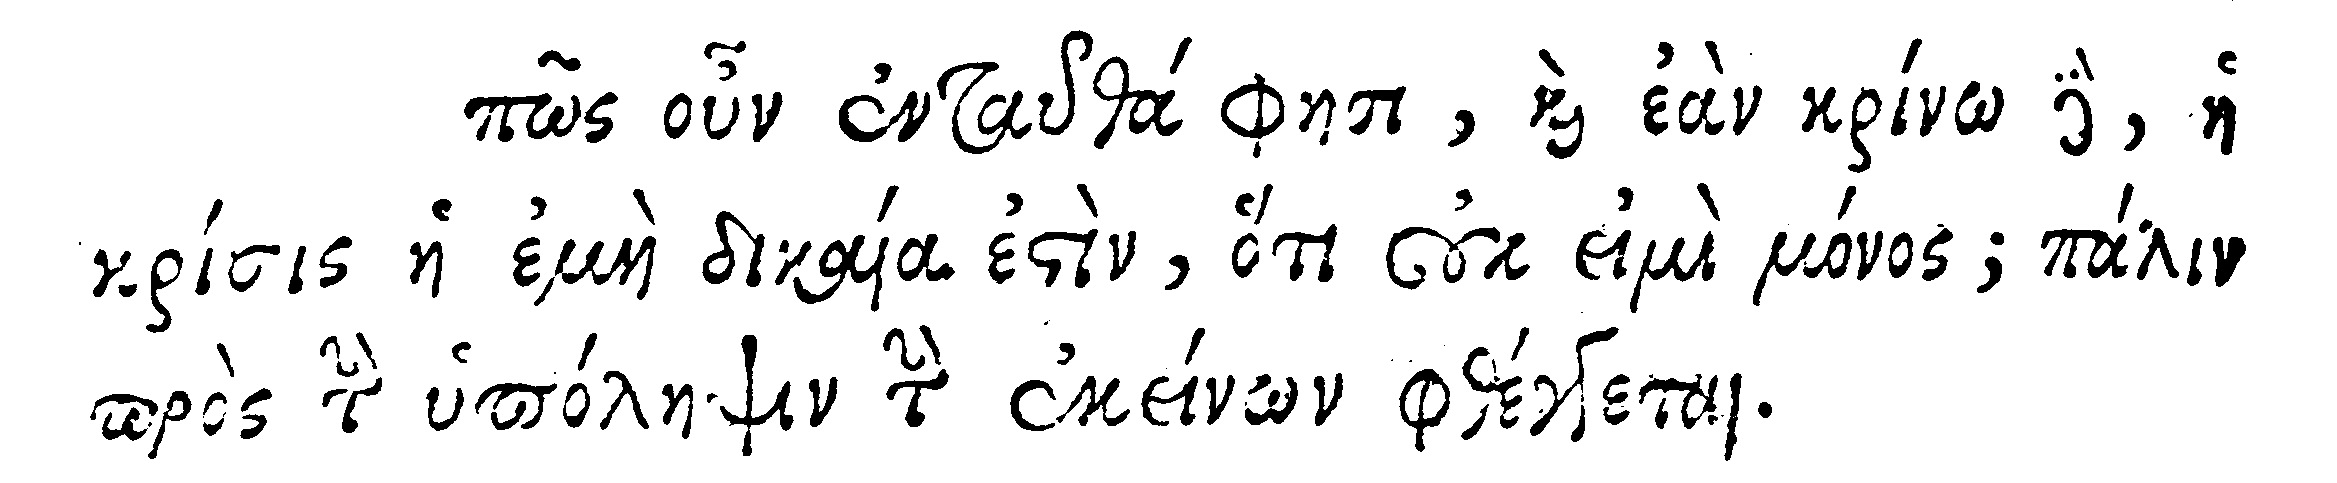 πῶς οὖν ἐνταυθά φησι, καὶ ἐὰν κρίνω δὲ, ἡ
κρίσις ἡ ἐμὴ δικαία ἐστὶν, ὅτι οὐκ εἰμὶ μόνος; πάλιν
πρὸς τὴν ὑπόληψιν τὴν ἐκείνων φθέγγεται.